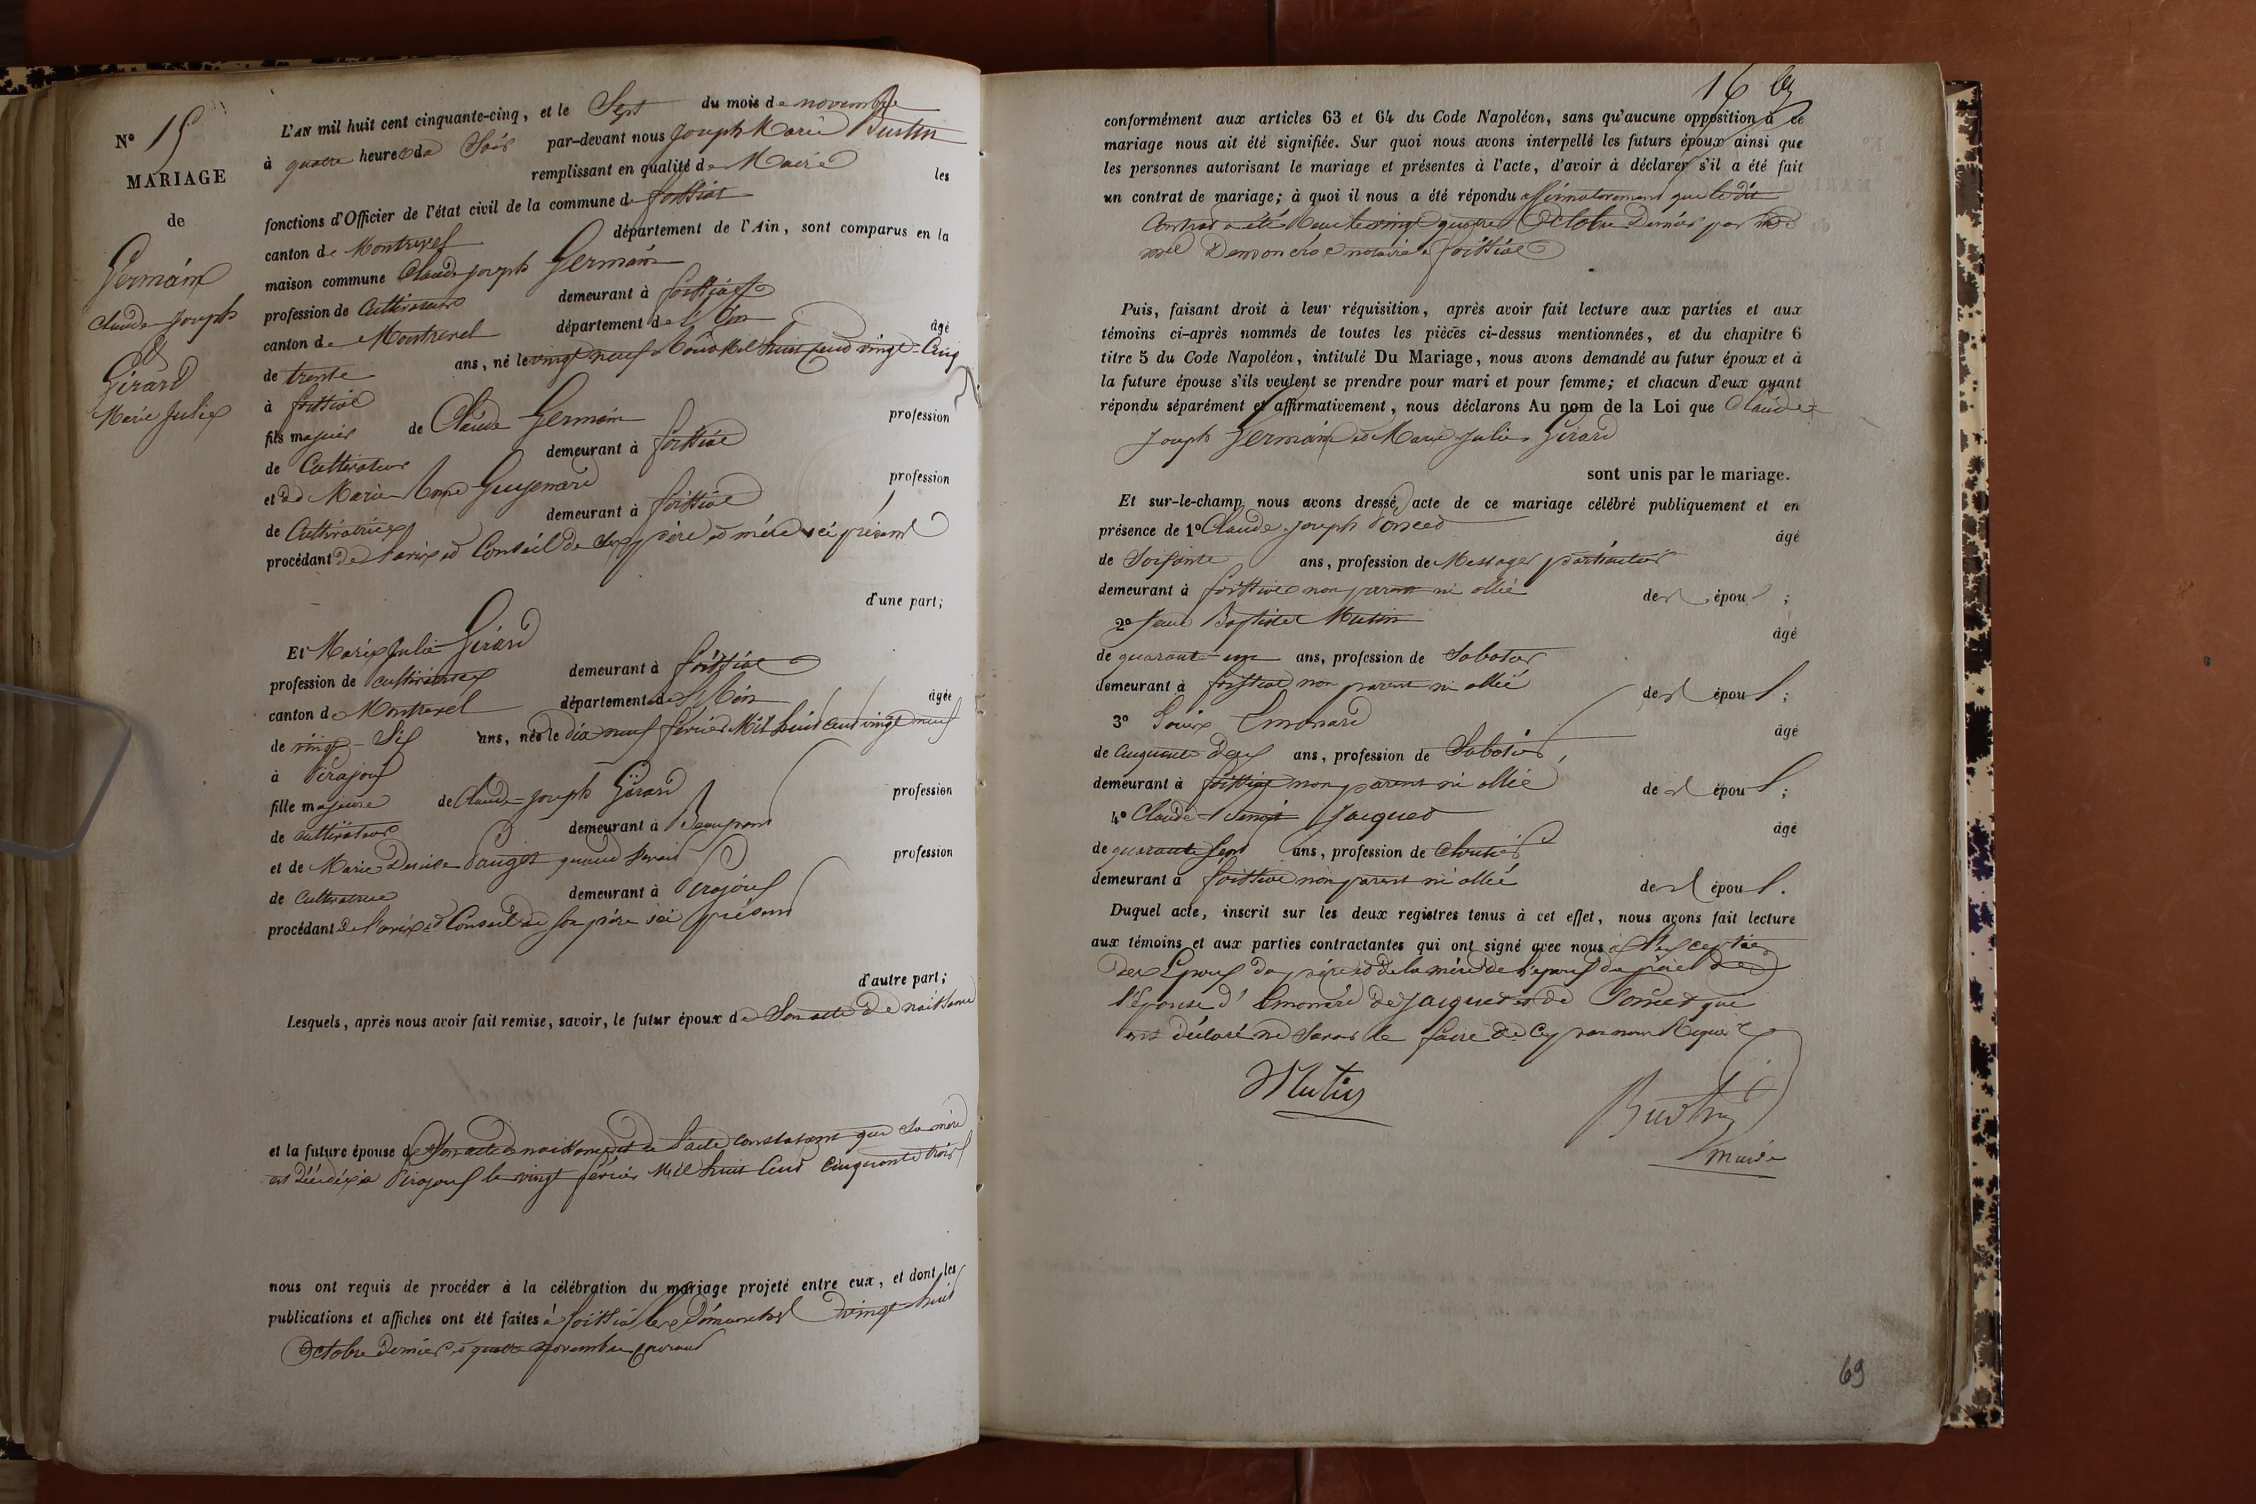 N° 15
MARIAGE
de
Germain
Claude Joseph
&
Girard
Marie Julie
L'AN mil huit cent cinquante-cinq, et le Sept du mois de novembre
à quatre heures du Soir par-devant nous Joseph Marie Buttin
remplissant en qualité de Maire les
fonctions d'Officier de l'état civil de la commune de foissiat
canton de Montrevel département de l'Ain, sont comparus en la
maison commune Claude joseph Germain
profession de Cultivateur demeurant à foissiat
canton de Montrevel département de l'Ain âgé
de trente ans, né le vingt neuf Mil huit cent vingt-Cinq
à foissiat
fils majeur de Claude Germain profession
de Cultivateur demeurant à foissiat
et de Marie Anne Guyenard profession
de Cultivatrice demeurant à foissiat
procédant de l'avis et Conseil de ses père et mère ici présent
d'une part;
Et Marie Julie Girard
profession de cultivatrice demeurant à foissiat
canton de Montrevel département de l'Ain âgée
de vingt-Six ans, née le dix neuf février Mil huit cent vingt neuf
à Pirajoux
fille majeure de Claude-joseph Girard profession
de cultivateur demeurant à Beaupont
et de Marie Denise Pauget quand vivait profession
de Cultivatrice demeurant à Pirajoux
procédant de l'avis et Conseil de son père ici présent
d'autre part;
Lesquels, après nous avoir fait remise, savoir, le futur époux de Son acte de naissance
et la future épouse de Son acte de naissance et de l'acte constatant que sa mère
est décédée à Pirajoux le vingt février Mil huit Cent Cinquante trois
nous ont requis de procéder à la célébration du mariage projeté entre eux, et dont les
publications et affiches ont été faites à foissiat les Dimanches vingt huit
Octobre dernier et quatre novembre courant
16
conformément aux articles 63 et 64 du Code Napoléon, sans qu'aucune opposition à ce
mariage nous ait été signifiée. Sur quoi nous avons interpellé les futurs époux ainsi que
les personnes autorisant le mariage et présentes à l'acte, d'avoir à déclarer s'il a été fait
un contrat de mariage; à quoi il nous a été répondu affirmativement que le dit
Contrat a été Reçu le vingt quatre Octobre Dernier par
notaire à foissiat
Puis, faisant droit à leur réquisition, après avoir fait lecture aux parties et aux
témoins ci-après nommés de toutes les pièces ci-dessus mentionnées, et du chapitre 6
titre 5 du Code Napoléon, intitulé Du Mariage, nous avons demandé au futur époux et à
la future épouse s'ils veulent se prendre pour mari et pour femme; et chacun d'eux ayant
répondu séparément et affirmativement, nous déclarons Au nom de la Loi que Claude
Joseph Germain et Marie Julie Girard
sont unis par le mariage.
Et sur-le-champ nous avons dressé acte de ce mariage célébré publiquement et en
présence de 1° Claude joseph Poncet âgé
de Soixante ans, profession de Messager particulier
demeurant à foissiat non parent ni allié de l'épou ;
2° Jean Baptiste Mutin âgé
de quarante-un ans, profession de Sabotier
demeurant à foissiat non parent ni allié de l'épou ;
3° Louis Emonard âgé
de Cinquante deux ans, profession de Sabotier
demeurant à foissiat non parent ni allié de l'épou ;
4° Claude Jacquet âgé
de quarante sept ans, profession de
demeurant à foissiat non parent ni allié de l'épou .
Duquel acte, inscrit sur les deux registres tenus à cet effet, nous avons fait lecture
aux témoins et aux parties contractantes qui ont signé avec nous à l'exception
des Époux du père et de la mère de l'époux du père de
l'épouse d'Emonard de Jacquet et de Poncet qui
ont déclaré ne Savoir le faire de ce par nous Requis
Mutin
Buttin
Maire
69